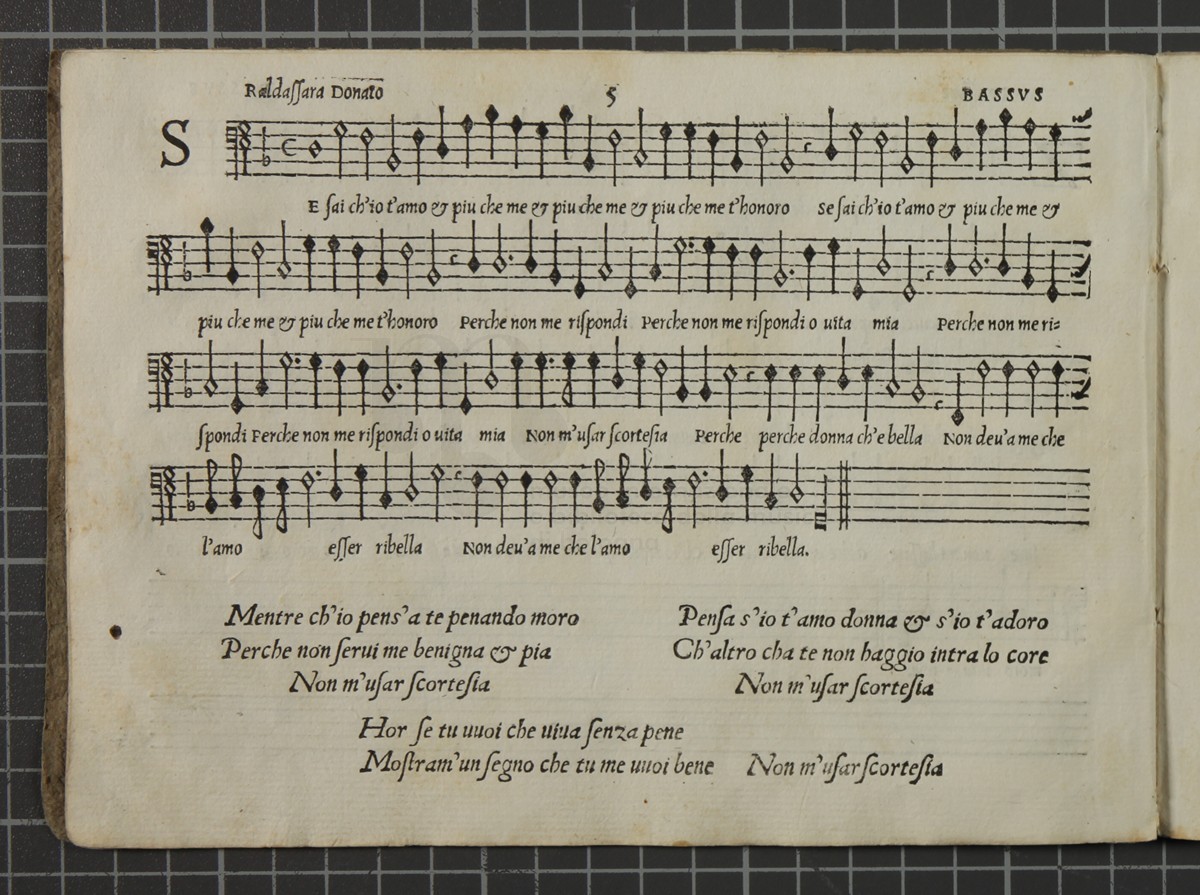 Baldaſſara Donato 5 BASSVS
S
E ſai ch'io t'amo & piu che me & piu che me & piu che me t'honoro Se ſai ch'io t'amo & piu che me &
piu che me & piu che me t'honoro Perche non me riſpondi Perche non me riſpondi o uita mia Perche non me ri=
ſpondi Perche non me riſpondi o uita mia Non m'uſar ſcorteſia Perche perche donna ch'e bella Non deu'a me che
l'amo eſſer ribella Non deu'a me che l'amo eſſer ribella.
Mentre ch'io pens'a te penando moro
Perche non ſerui me benigna & pia
Non m'uſar ſcorteſia
Penſa s'io t'amo donna & s'io t'adoro
Ch'altro cha te non haggio intra lo core
Non m'uſar ſcorteſia
Hor ſe tu uuoi che uiua ſenza pene
Moſtram'un ſegno che tu me uuoi bene Non m'uſar ſcorteſia